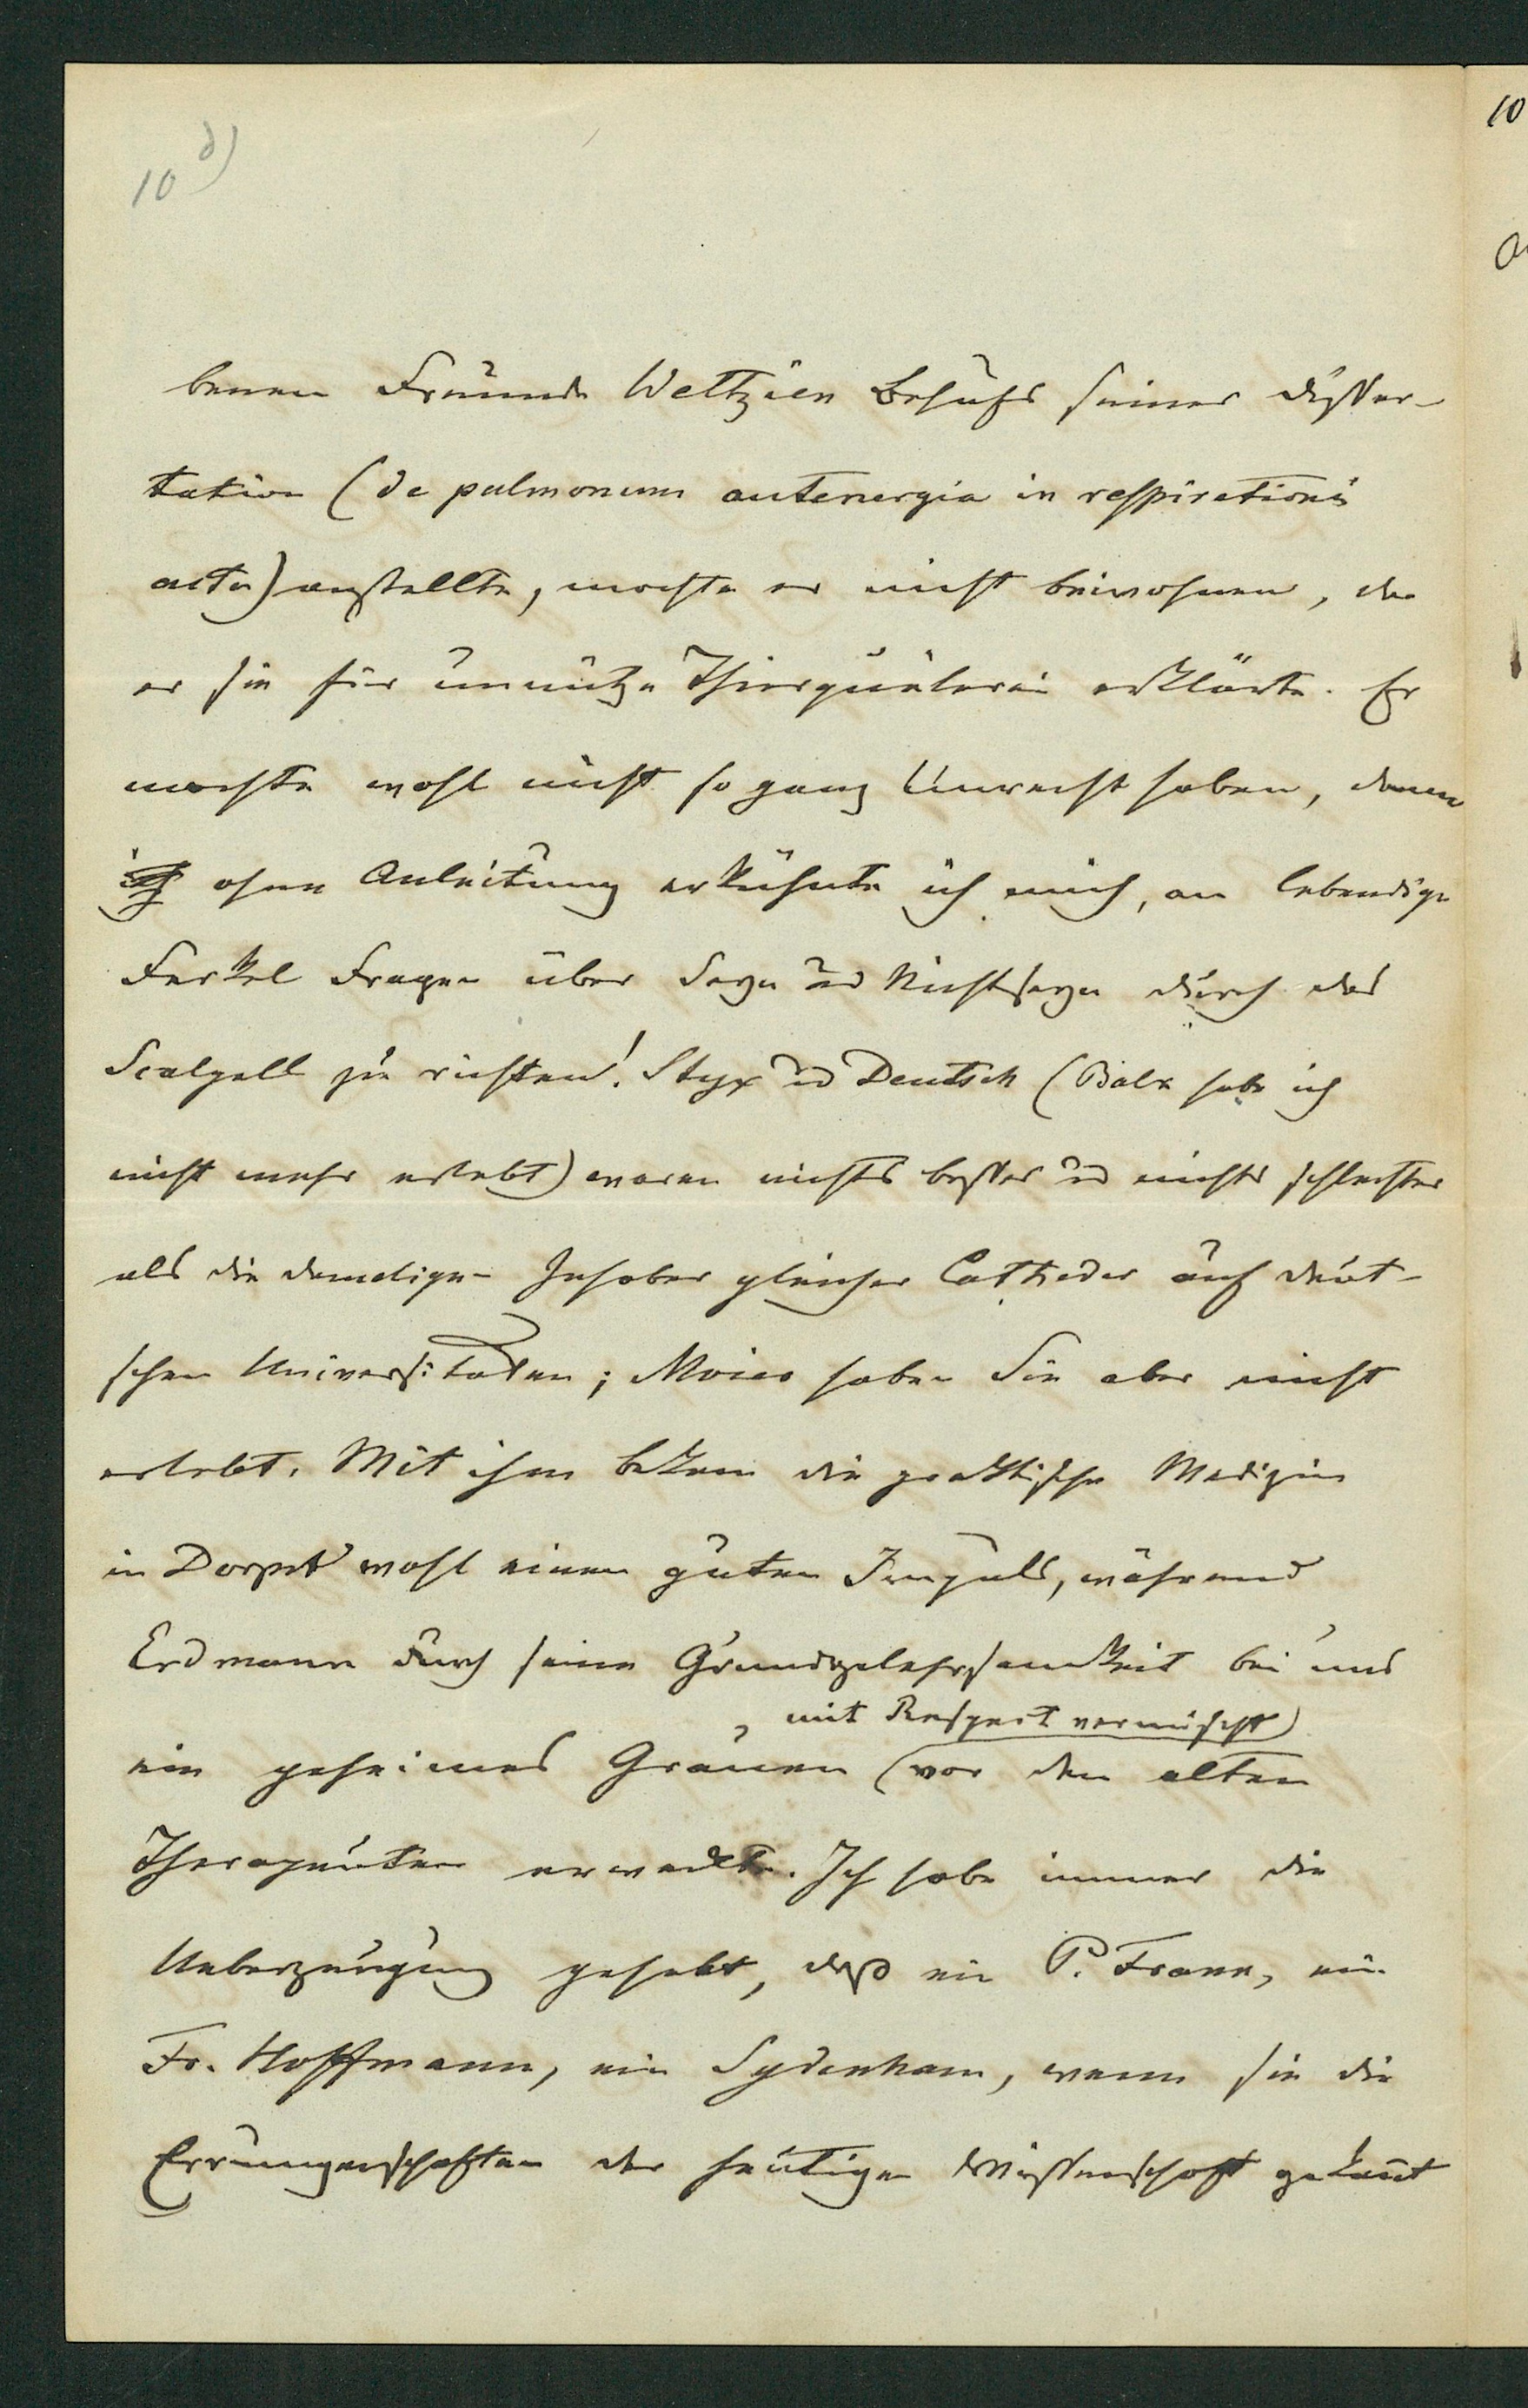 10 d)
benen Freunde Weltzien Behufs seiner Disser-
tation (de pulmonum autenergia in respirationis
actu) anstellte, mochte er nicht beiwohnen, da
er sie für unnütze Thierquälerei erklärte. Er
mochte wohl nicht so ganz Unrecht haben, denn
ohne Anleitung erkühnte ich mich, an lebendige
Ferkel Fragen über Seyn und Nichtseyn durch das
Scalpell zu richten! Styx und Deutsch (Balk habe ich
nicht mehr erlebt) waren nichts besser und nichts schlechter
als die damaligen Inhaber gleicher Catheder auf deut-
schen Universitäten; Moier haben Sie aber nicht
erlebt. Mit ihm bekam die praktische Medizin
in Dorpat wohl einen guten Impuls, während
Erdmann durch seine Grundgelehrsamkeit bei uns
mit Respect vermischt)
ein geheimes Grauen (vor den alten
Therapeuten erweckte. Ich habe immer die
Ueberzeugung gehabt, daß ein P. Frank, ein
Fr. Hoffmann, ein Sydenham, wenn sie die
Errungenschaften der heutigen Wissenschaft gekannt
10